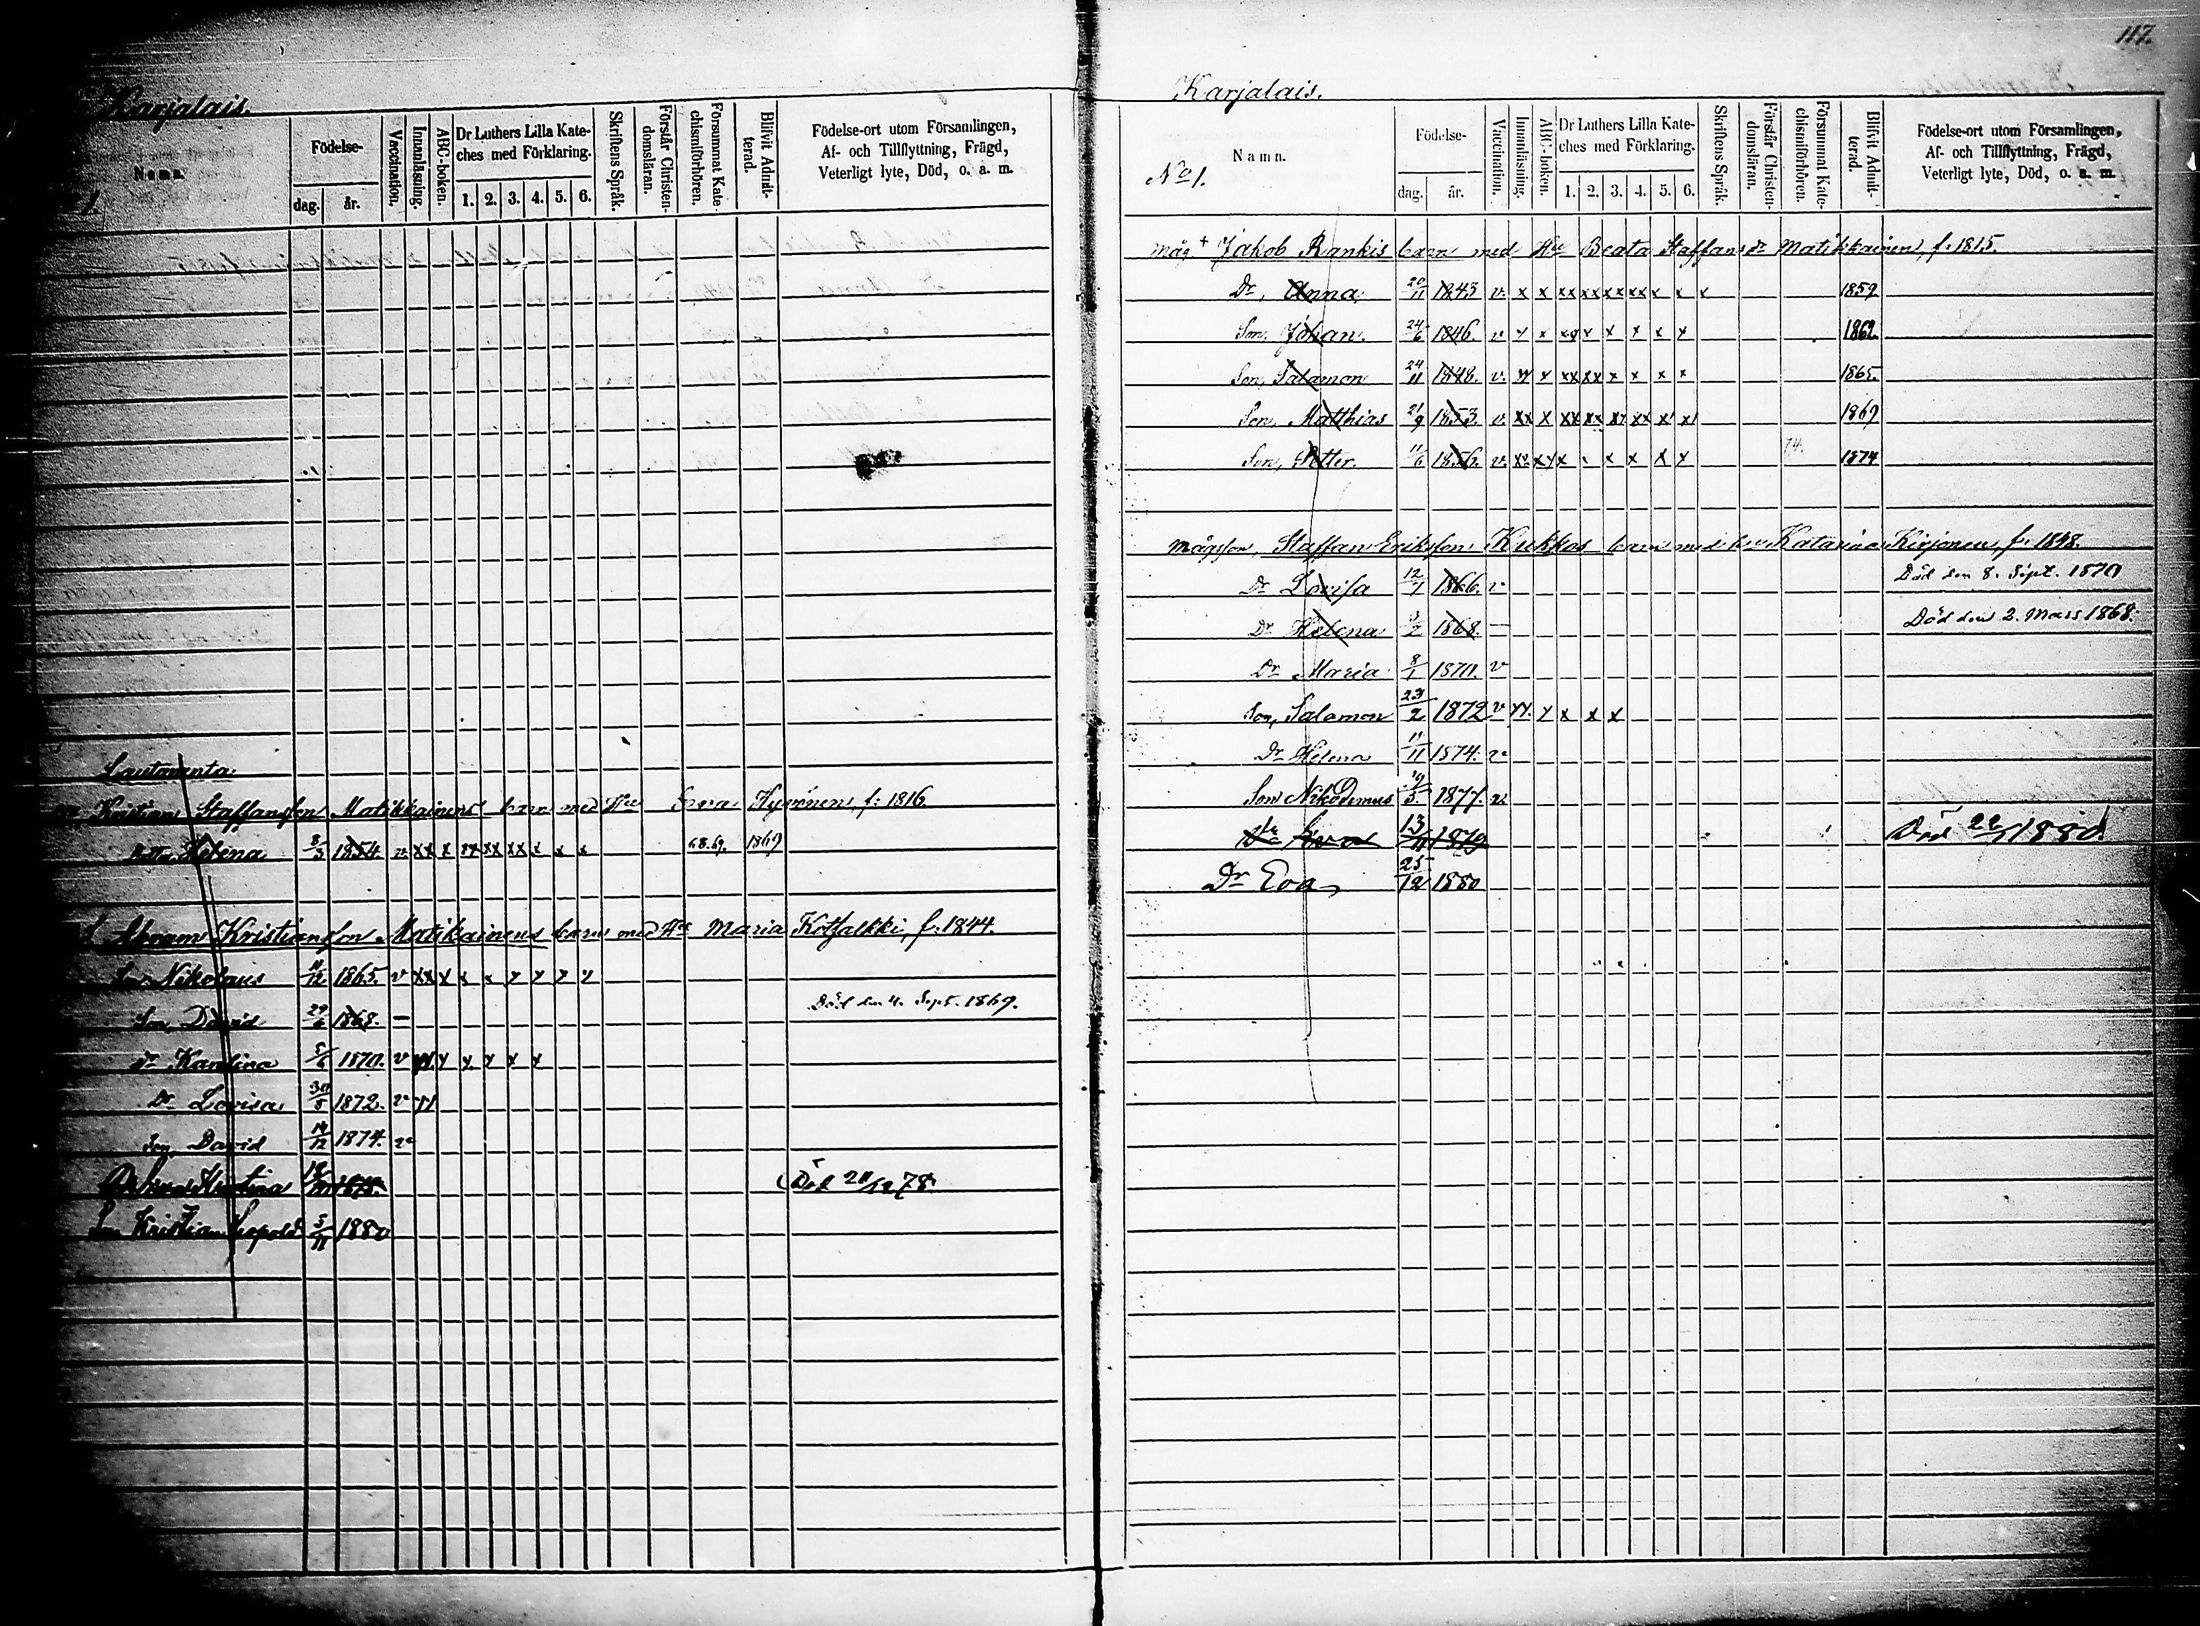 Karjalais.
Namn.
Födelse-
dag. år.
Vaccination.
Innanläsning.
ABC-boken.
Dr Luthers Lilla Kate-
ches med Förklaring.
1. 2. 3. 4. 5. 6.
Skriftens Språk.
Förstår Christen-
domsläran.
Försummat Kate-
chismiförhören.
Blifvit Admit-
terad.
Födelse-ort utom Församlingen,
Af- och Tillflyttning, Frägd,
Veterligt lyte, Död, o. a. m.
1.
Lautaranta
Kristian Staffansson Matikkainens barn med Hu Eva Hyvönen, f: 1816.
Helena 8/3 1854. v xx x xx xx xx x x x 68.69. 1869
Abram Kristiansson Matikainens barn med Hu Maria Kotsalkki, f: 1844.
Son Nikolaus 11/12 1865. v xx x x x x x x x
Son, David 29/6 1868. — Död den 4. Sept. 1869.
Dr Karolina 5/6 1870. v xx x x x x x
Dr Lovisa 30/8 1872. v xx
Son, David 14/12 1874. v
Död 20/12 78.
Son Kristian Leopold 5/11 1880
117.
Karjalais.
No 1.
Namn.
Födelse-
dag. år.
Vaccination.
Innanläsning.
ABC-boken.
Dr Luthers Lilla Kate-
ches med Förklaring.
1. 2. 3. 4. 5. 6.
Skriftens Språk.
Förstår Christen-
domsläran.
Försummat Kate-
chismiförhören.
Blifvit Admit-
terad.
Födelse-ort utom Församlingen,
Af- och Tillflyttning, Frägd,
Veterligt lyte, Död, o. a. m.
måg. + Jakob Rankis barn med Hu Beata Staffans dr Matikkainen, f: 1815.
Dr, Anna 20/11 1843 v. x x xx xx xx xx x x x 1859
Son, Johan. 24/6 1846. v x x xx x x x x x 1862.
Son, Salamon 24/11 1848. v. xx x xx xx x x x x 1865.
Son, Matthias 21/9 1853. v. xx x xx xx xx xx x x 1869
Son, Petter. 11/6 1856. v. xx xx x x x x x x 74. 1874
mågsson, Staffan Eriksson Kukkos barn med hu Katarina Kirjonen, f: 1848.
Dr Lovisa 12/7 1866. v Död den 8. Sept. 1870
Dr Helena 3/2 1868. — Död den 2. Mars 1868.
Dr Maria 8/1 1870. v
Son, Salamon 23/2 1872 v xx. x x x x
Dr Helena 11/11 1874. v
Son Nikodemus 19/5. 1877. v
Dr Eva 13/11 1879 Död 22/1 1880
Dr Eva 25/12 1880